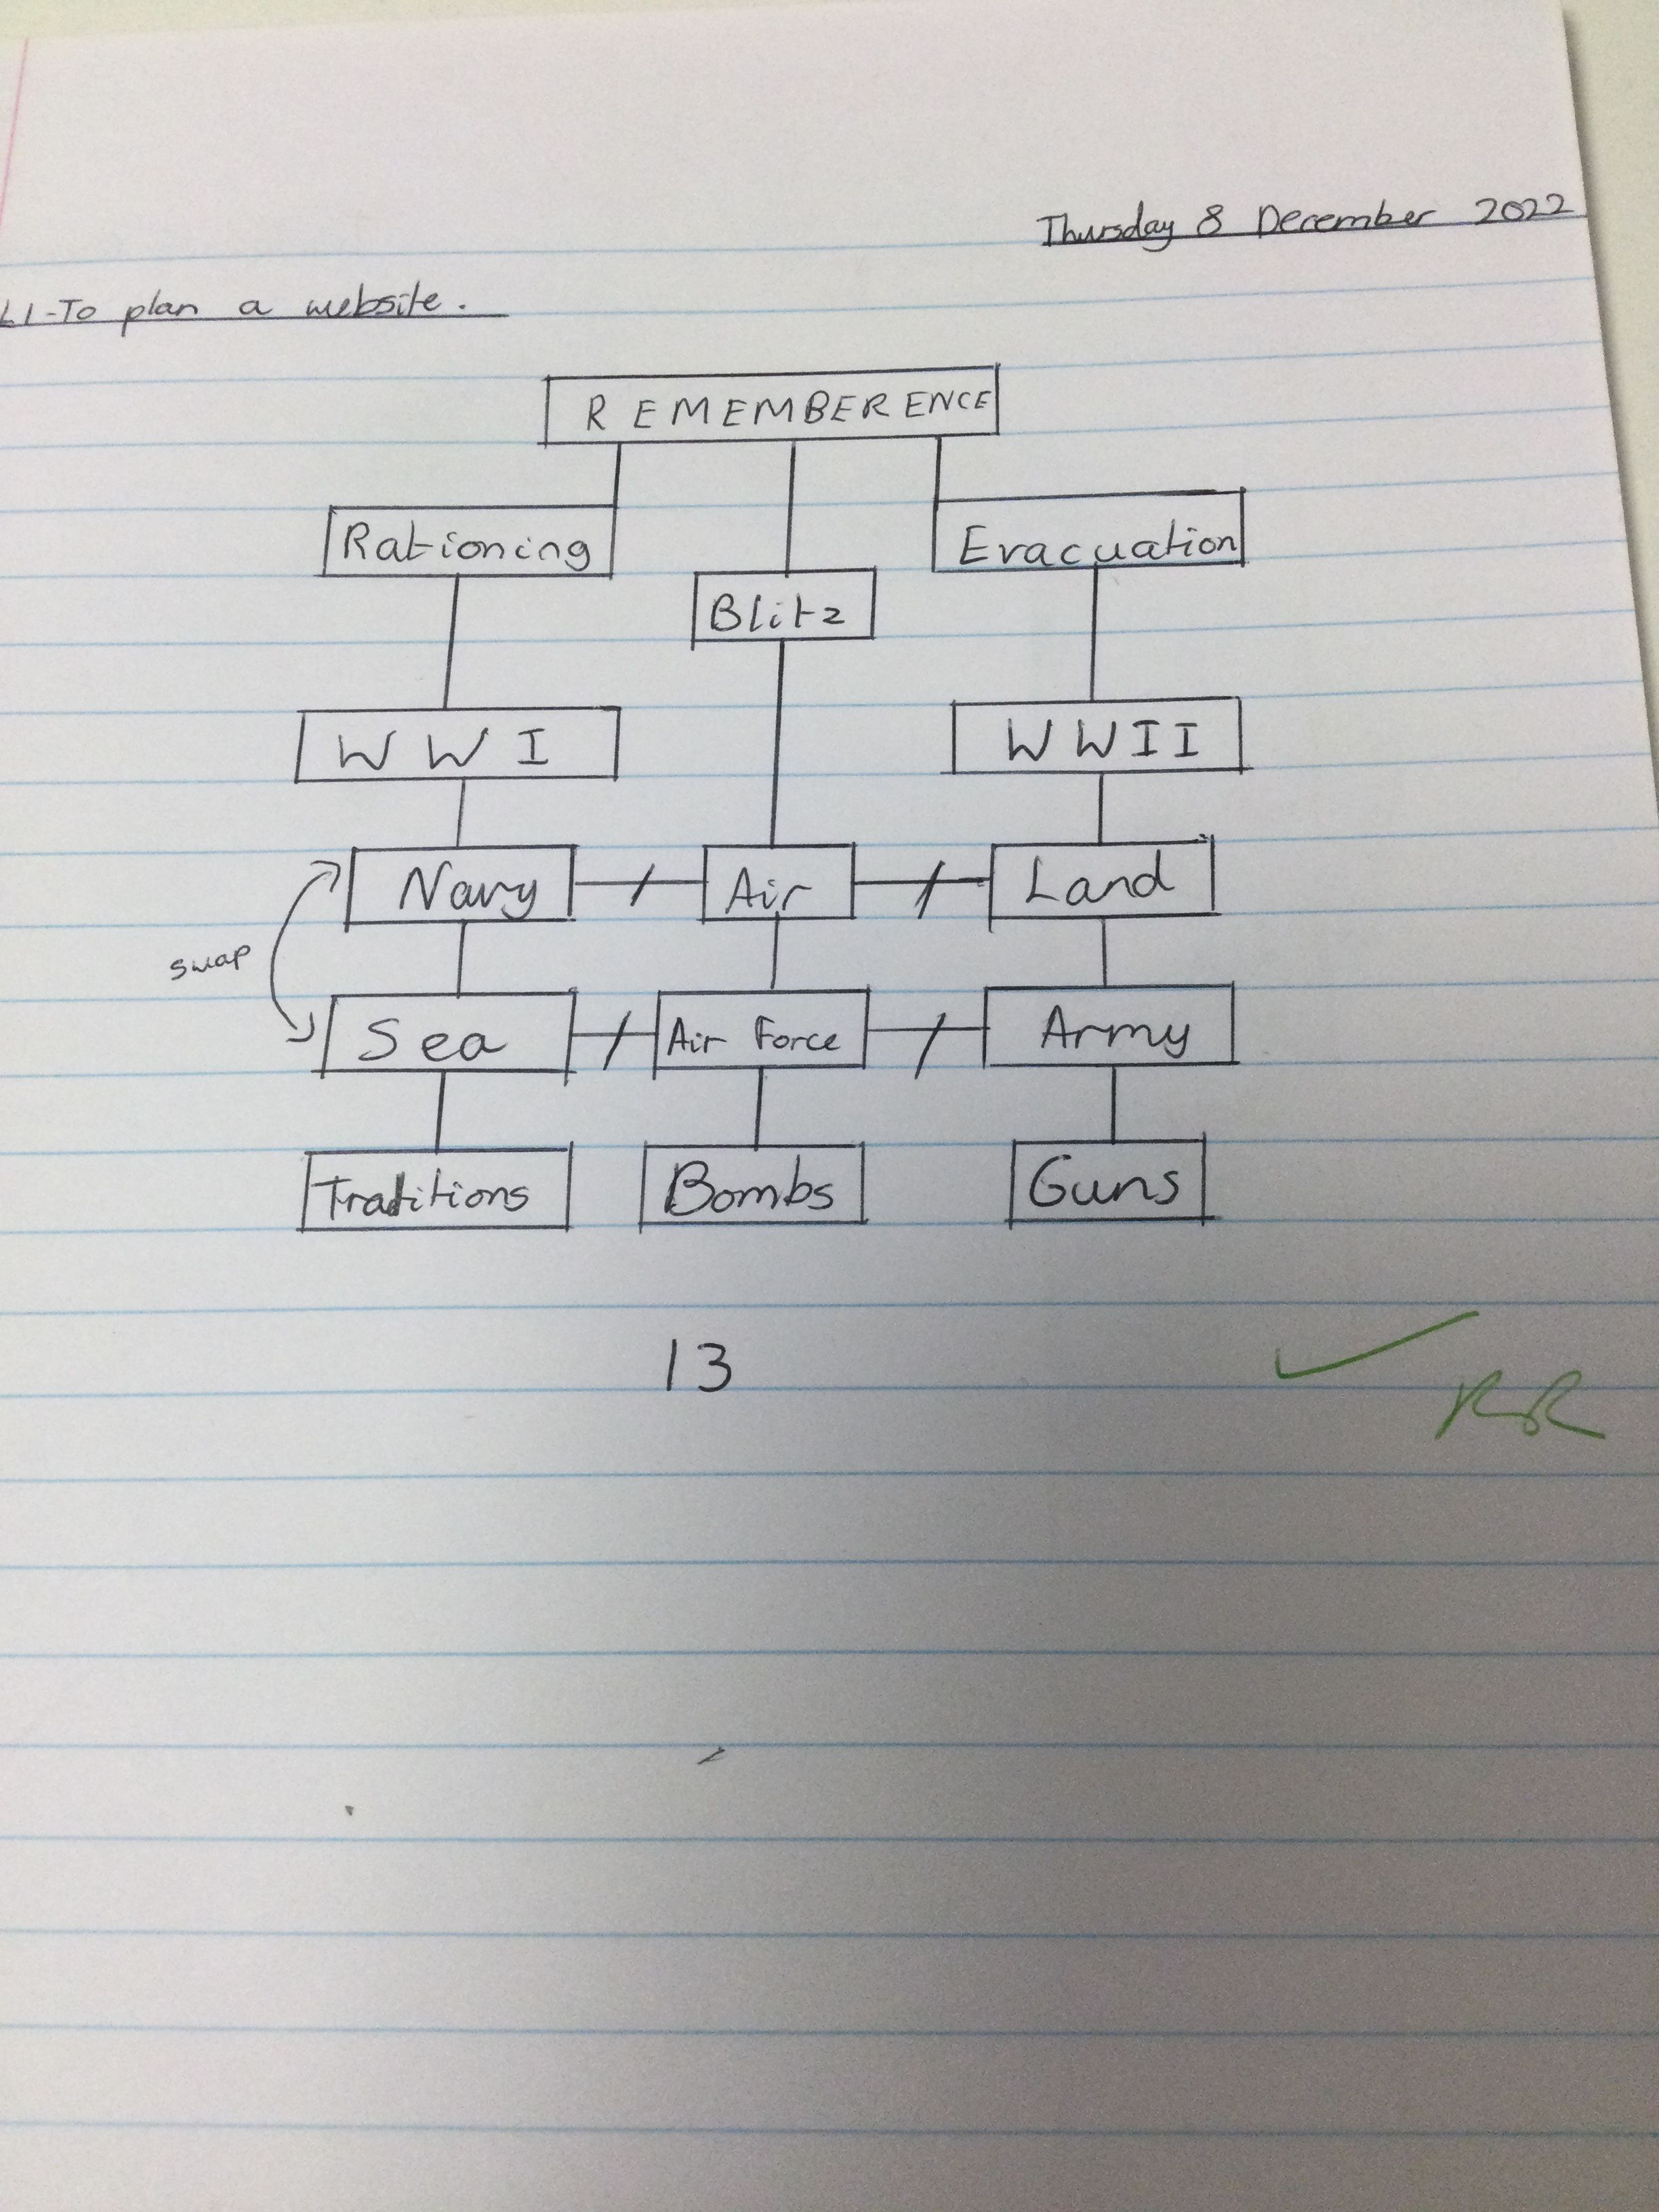 Thursday 8 December 2022
LI-To plan a website.
REMEMBERENCE
Rationing Evacuation
Blitz
WWI WWII
Navy Air Land
swap
Sea Air Force Army
Traditions Bombs Guns
13
RR